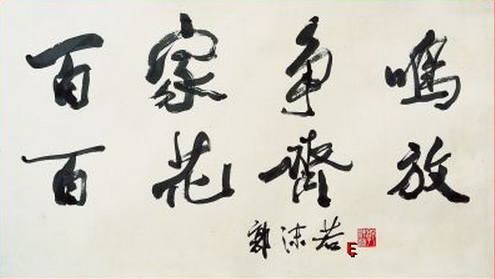 百家争鸣
百花齊放
郭沫若
E